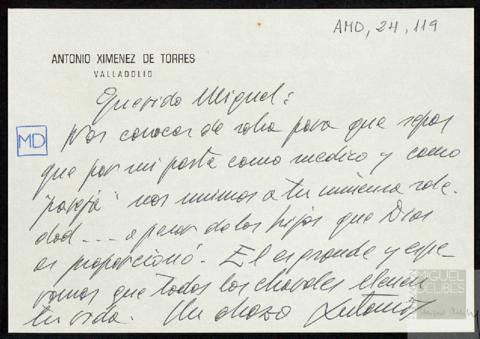 AMD, 24, 119
ANTONIO XIMENEZ DE TORRES
VALLADOLID
Querido Miguel:
MD
Nos conoces de sobra para que sepas
que por mi parte como medico y como
"pareja" nos unimos a tu inmensa sole-
dad.... a pesar de los hijos que Dios
os proporcionó. El es grande y espe-
ramos que todos los chavales llenen
tu vida. Un abrazo Antonio
MIGUEL
DELIBES